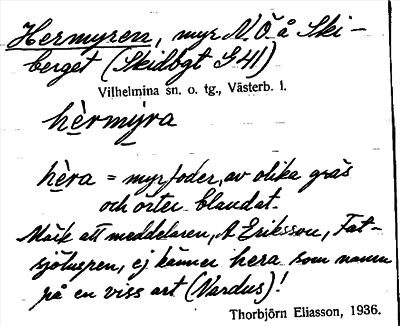 Hermyren, myr N. Ö å Ski-
berget (Skidbgt G 41)
Vilhelmina sn. o. tg., Västerb. l.
hèrmyra
hèra = myrfoder, av olika gräs
och örter blandat.
Märk att meddelaren, A Eriksson, Fat-
sjöluspen, ej känner hera som namn
på en viss art (Nardus)!
Thorbjörn Eliasson, 1936.